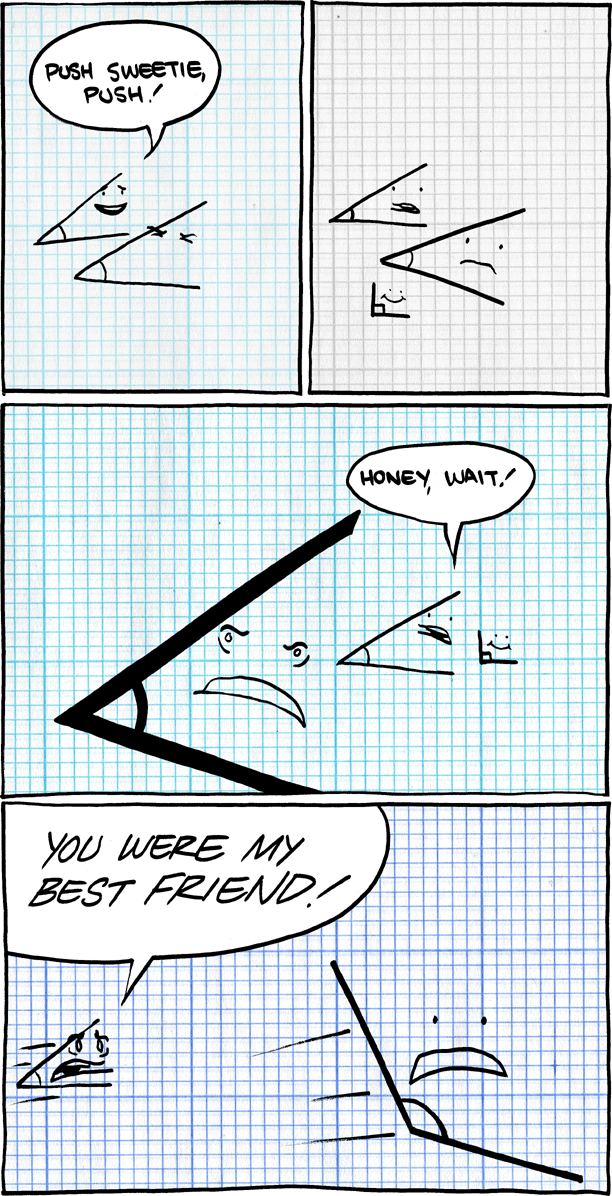 PUSH SWEETIE,
PUSH!
HONEY, WAIT!
YOU WERE MY
BEST FRIEND!